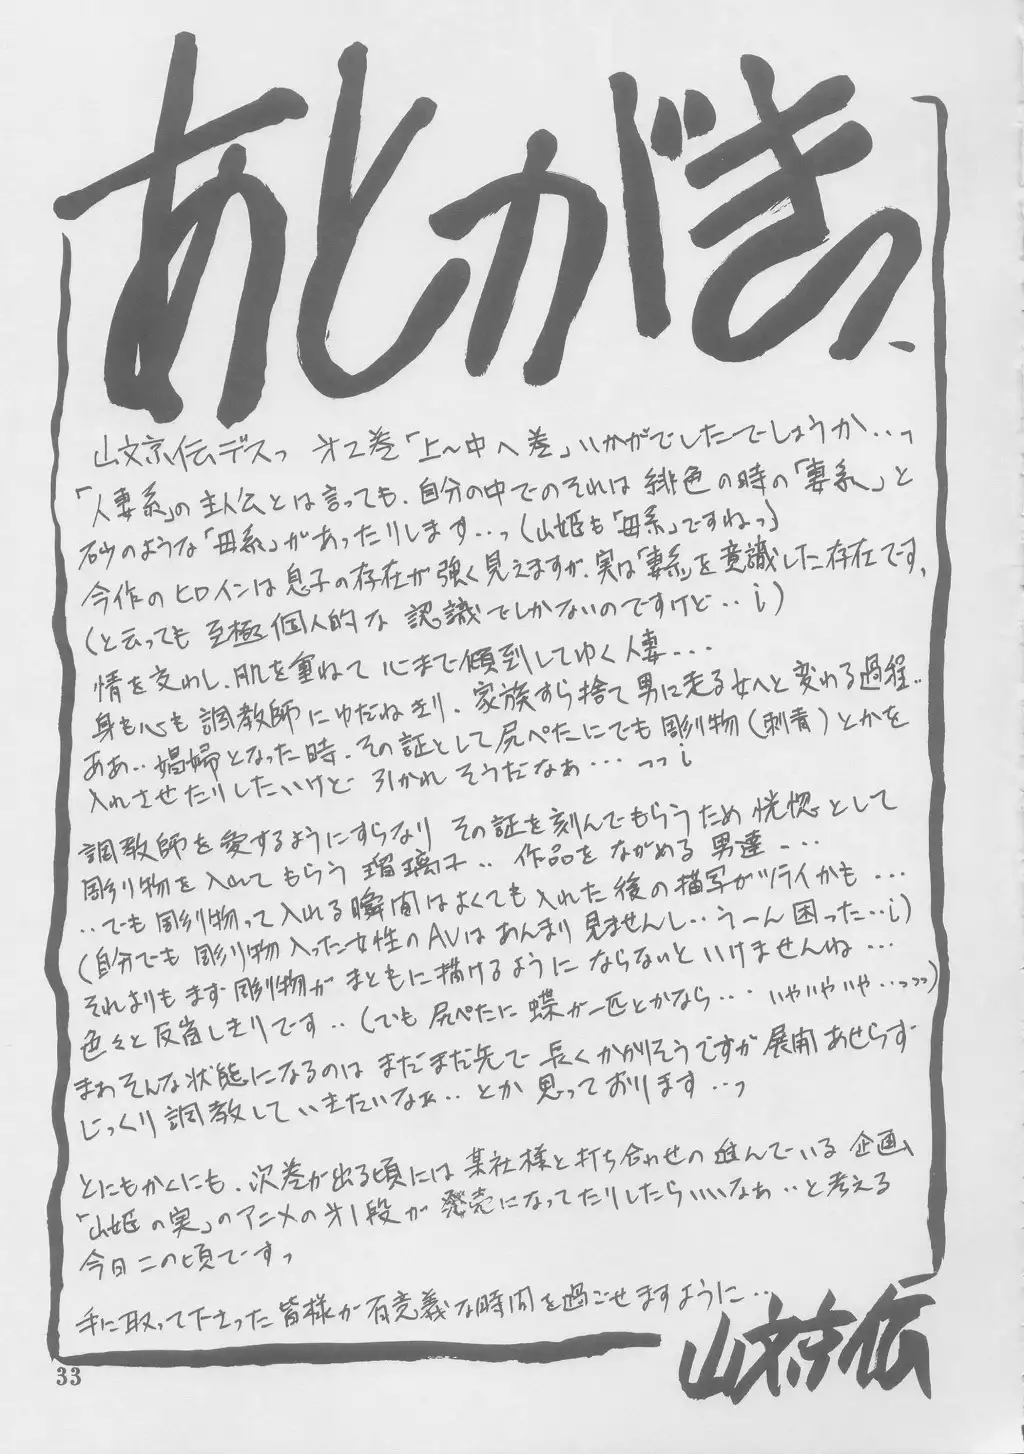 あとがきっ
山文京伝デスっ 才2巻「上〜中へ巻」いかがでしたでしょうか‥っ
「人妻系」の主人公とは言っても、自分の中でのそれは緋色の時の「妻系」と
砂のような「母系」があったりします…っ(山姫も「母系」ですねっ)
今作のヒロインは息子の存在が強く見えますが、実は「妻系」を意識した存在です、
(と云っても至極個人的な認識でしかないのですけど‥¡)
情を交わし、肌を重ねて心まで傾倒してゆく人妻...
身も心も調教師にゆだねきり、家族すら捨て男に走る女へと変わる過程‥
ああ‥娼婦となった時、その証として尻ぺたにでも彫り物(刺青)とかを
入れさせたりしたいけど引かれそうだなぁ…っっ¡
調教師を愛するようにすらなりその証を刻んでもらうため恍惚として
彫り物を入れてもらう瑠璃子‥作品をながめる男達...
‥でも彫り物って入れる瞬間はよくても入れた後の描写がツライかも...
(自分でも彫り物入った女性のAVはあんまり見ませんし‥うーん困った‥¡)
それよりもまず彫り物がまともに描けるようにならないといけませんね...
色々と反省しきりです‥(でも尻ぺたに蝶が一匹とかなら...いやいやいや‥っっっ)
まわそんな状態になるのはまだまだ先で長くかかりそうですが展開あせらず
じっくり調教していきたいなぁ‥とか思っております‥っ
とにもかくにも、次巻が出る頃には某社様と打ち合わせの進んでいる企画、
「山姫の実」のアニメの才1段が発売になってたりしたらいいなぁ‥と考える
今日この頃ですっ
手に取って下さった皆様が有意義な時間を過ごせますように‥
山文京伝
33